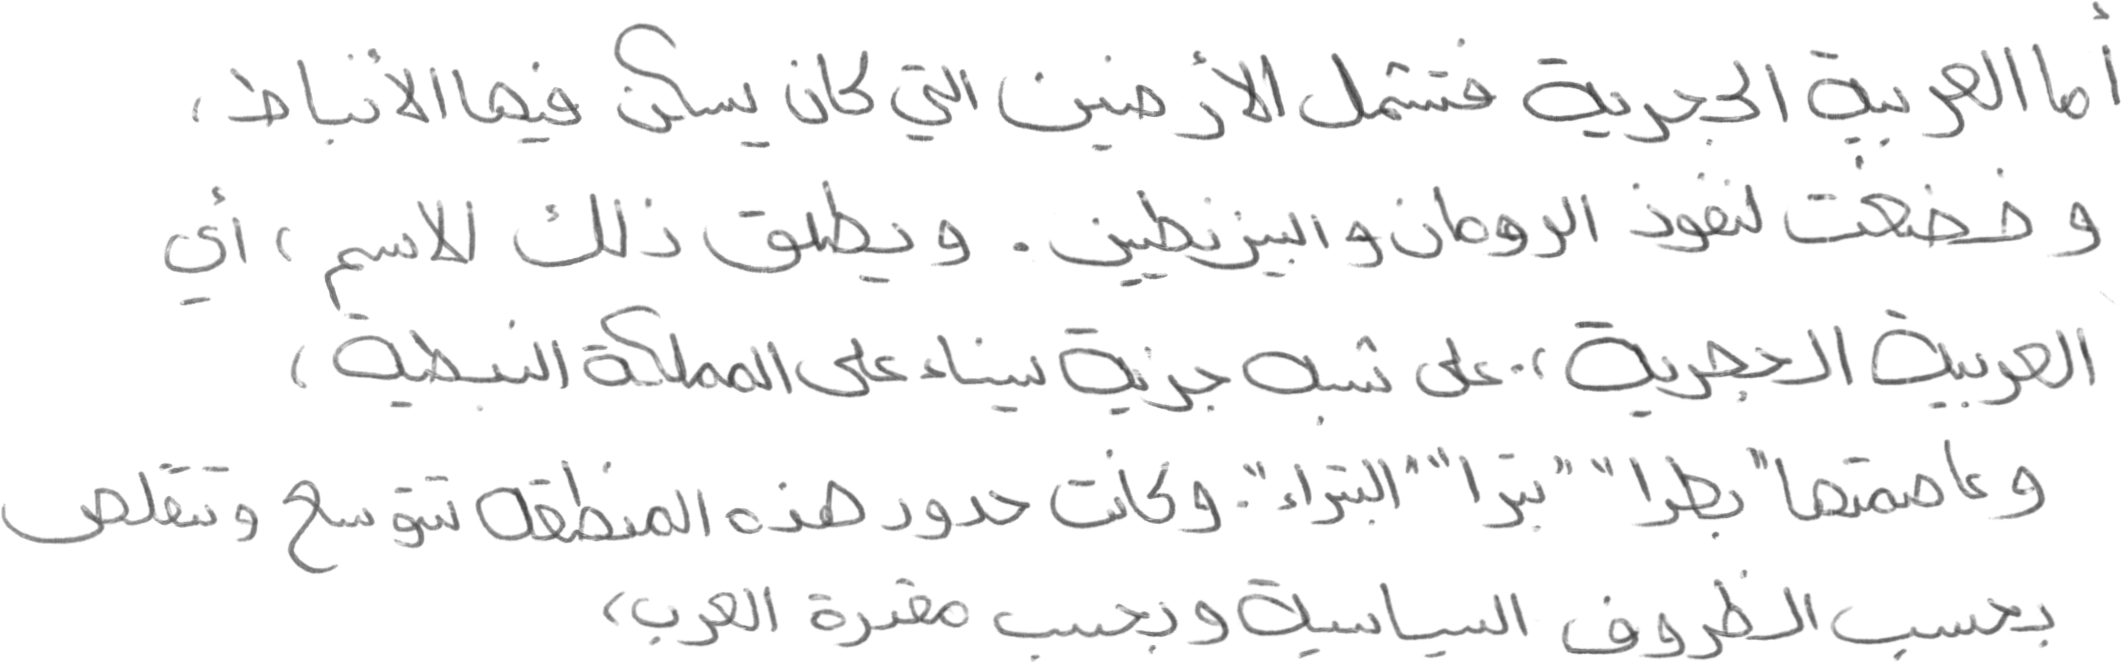 أما العربية الحجرية فتشمل الأرضين التي كان يسكن فيها الأنباط،
وخضعت لنفوذ الرومان والبيزنطين. ويطلق ذلك الاسم، أي
العربية الحجرية، على شبه جزية سيناء على المملكة النبطية،
وعاصمتها "بطرا" "بترا" "البتراء". وكانت حدود هذه المنطقة تتوسع وتتقلص
بحسب الظروف السياسية وبحسب مقدرة العرب،